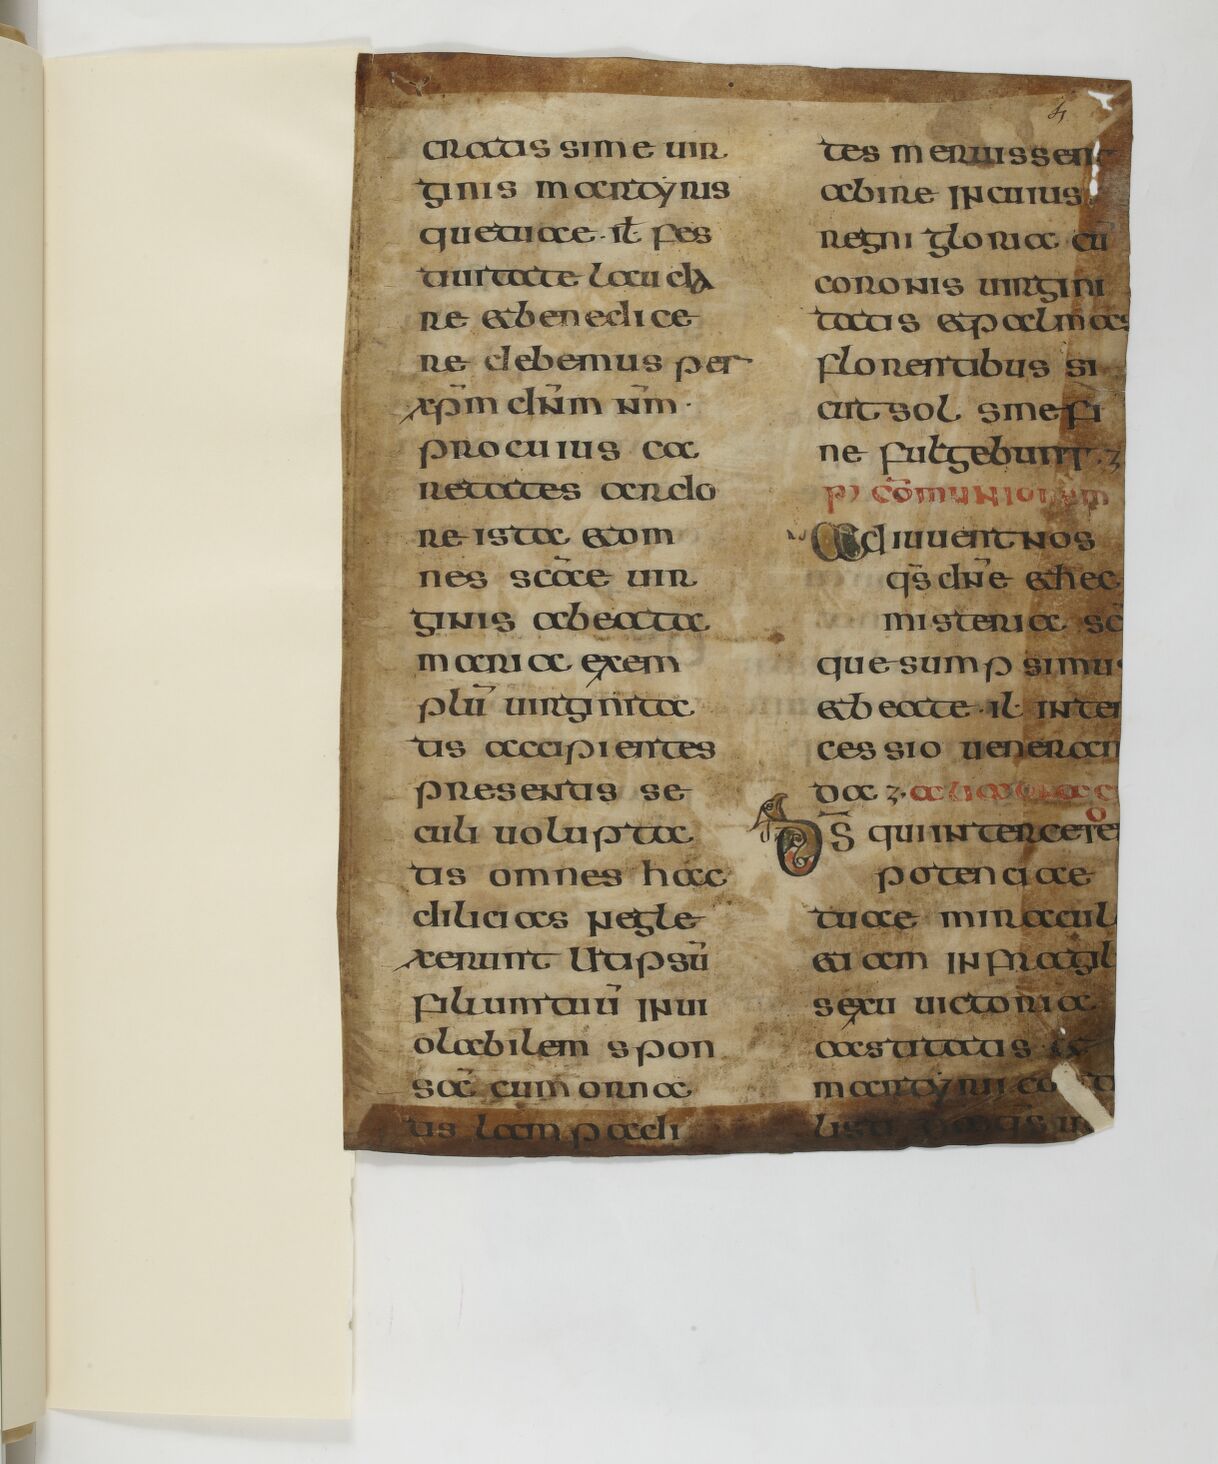 cratissime uir
ginis martyris
quetuae · il̅ · fes
tiuitate lauda
re et benedice
re debemus per
xp̅m dn̅m nr̅m ·
pro cuius ca
retates ardo
re ista et om
nes sc̅ae uir
ginis abeata
maria exem
plu̅ uirginita
tis accipientes
presentis se
culi uolupta
tis omnes hac
dilicias negle
xerunt Ut ipsu̅
filium tuu̅ inui
olabilem spon
sa̅ cum orna
tis lampadi
4
tes meruissent
abire in cuius
regni gloria cu̅
coronis uirgini
tatis et palmas
florentibus si
cut sol sine fi
ne fulgebunt ·
p) co̅munionem
Adiuuent nos
qs̅ dn̅e et hec
misteria sc̅
que sumpsimus
et beate · il̅ · inter
cessio ueneran
da
Ds̅ qui inter cete
potenciae
tuae miracul
etiam in fragil
sexu uictoria
castitatis et
martyrii